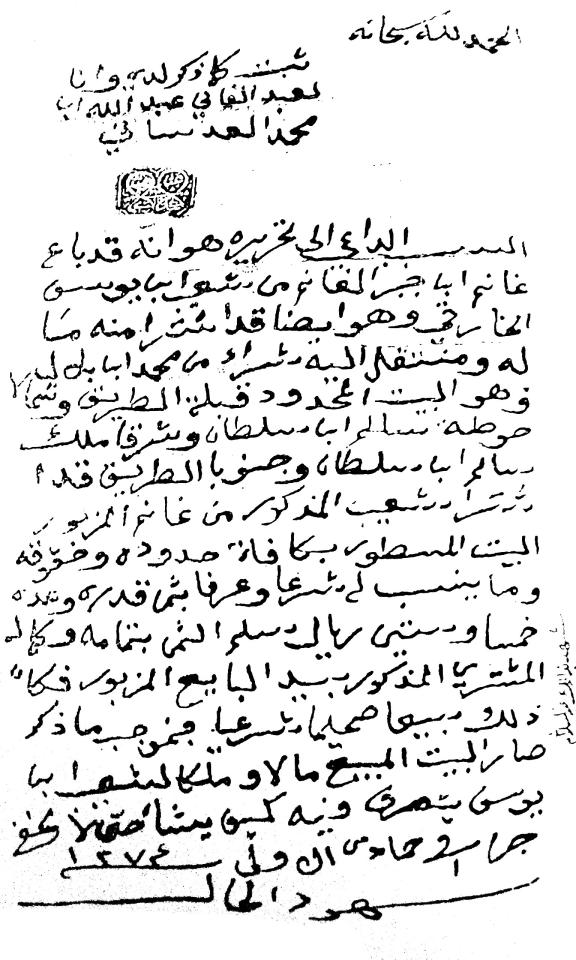 الحمد لله سبحانه
ثبت كلما ذكر لدي وانا
العبد الفاني عبد الله ابن
محمد العدساني
السبب الداعي الى تحريره هو انه قد باع
غانم ابن جبر الغانم من شعيب ابن يوسف
وهو ايضا قد اشترا منه ما
له ومنتقل اليه شراء من محمد ابن
وهو البيت المحدود قبلة الطريق وشمالا
حوطة سالم ابن سلطان وشرقا ملك
سالم ابن سلطان وجنوبا الطريق قد
اشترا شعيب المذكور من غانم المزبور
البيت المسطور بكافة حدوده وحقوقه
وما ينسب له شرعا وعرفا بثمن قدره وعدده
خمسا وستين ريال سلم الثمن بتمامه وكماله
المشتري المذكور بيد البايع المزبور فكان
ذلك بيعا صحيحا شرعيا فبموجب ما ذكر
صار البيت المبيع مالا وملكا لشعيب ابن
يوسف يتصرف فيه كيف يشاء حتى لا يخفى
جرا في جماد الاولى ١٢٧٤
شهود الحال